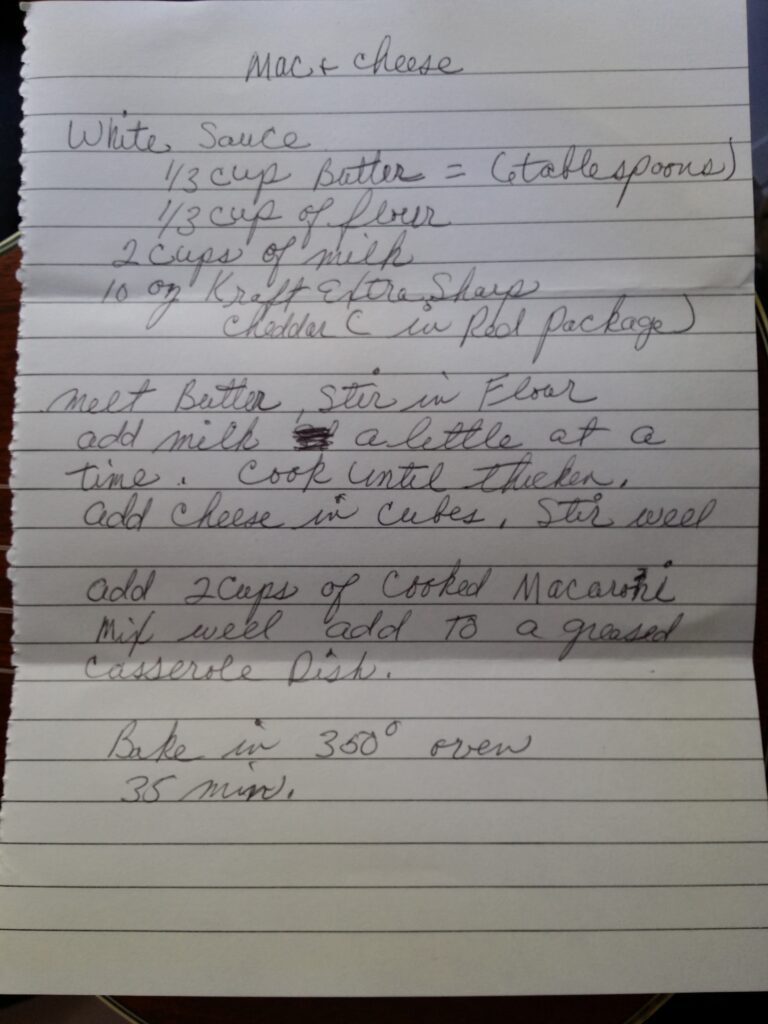 Mac + cheese
White Sauce
1/3 cup Butter = (6 tablespoons)
1/3 cup of flour
2 cups of milk
10 oz Kraft Extra Sharp
cheddar (in Red package)
melt Butter, Stir in Flour
add milk a little at a
time. Cook until thicken.
add cheese in cubes. Stir well
add 2 cups of cooked Macaroni
Mix well add to a greased
Casserole Dish.
Bake in 350° oven
35 min.